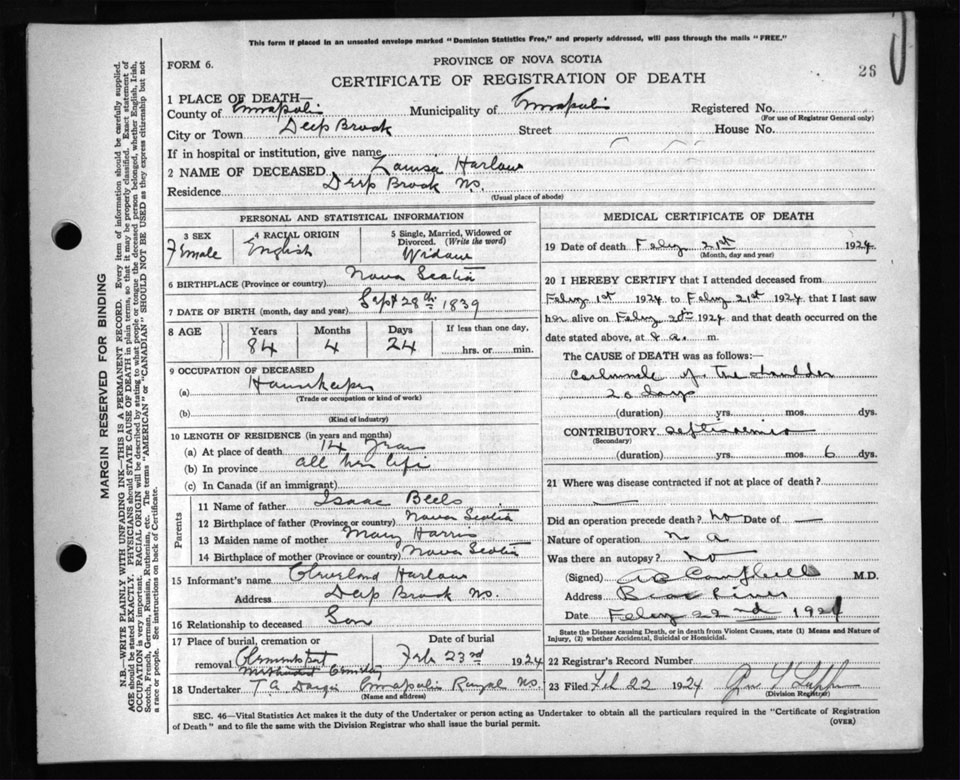 This form if placed in an unsealed envelope marked "Dominion Statistics Free," and properly addressed, will pass through the mails "FREE."
FORM 6.
PROVINCE OF NOVA SCOTIA
26
CERTIFICATE OF REGISTRATION OF DEATH
1 PLACE OF DEATH—
County of Annapolis Municipality of Annapolis Registered No.
(For use of Registrar General only)
City or Town Deep Brook Street House No.
If in hospital or institution, give name
2 NAME OF DECEASED Louisa Harlow
Residence Deep Brook NS.
(Usual place of abode)
PERSONAL AND STATISTICAL INFORMATION
3 SEX 4 RACIAL ORIGIN 5 Single, Married, Widowed or Divorced. (Write the word)
Female English Widow
6 BIRTHPLACE (Province or country) Nova Scotia
7 DATE OF BIRTH (month, day and year) Sept 28th 1839
8 AGE Years Months Days If less than one day,
84 4 24 hrs. or min.
9 OCCUPATION OF DECEASED
(a) Housekeeper
(Trade or occupation or kind of work)
(b)
(Kind of industry)
10 LENGTH OF RESIDENCE (in years and months)
(a) At place of death 14 years
(b) In province all her life
(c) In Canada (if an immigrant)
Parents
11 Name of father Isaac Beels
12 Birthplace of father (Province or country) Nova Scotia
13 Maiden name of mother Mary Harris
14 Birthplace of mother (Province or country) Nova Scotia
15 Informant's name Cleveland Harlow
Address Deep Brook NS.
16 Relationship to deceased Son
17 Place of burial, cremation or Date of burial
removal Clementsport Methodist Cemetery Feb 23rd 1924
18 Undertaker T A Annapolis Royal NS.
(Name and address)
MEDICAL CERTIFICATE OF DEATH
19 Date of death Feby 21st 1924
(Month, day and year)
20 I HEREBY CERTIFY that I attended deceased from
Feby 1st 1924 to Feby 21st 1924 that I last saw
her alive on Feby 20th 1924 and that death occurred on
date stated above, at 4 a. m.
The CAUSE OF DEATH was as follows:
Carbuncle of the shoulder
20 days
(duration) yrs. mos. dys.
CONTRIBUTORY septicaemia
(Secondary)
(duration) yrs. mos. 6 dys.
21 Where was disease contracted if not at place of death?
—
Did an operation precede death? No Date of —
Nature of operation n a
Was there an autopsy? No
(Signed) Campbell M.D.
Address Bear River
Date Feby 22nd 1924
State the Disease causing Death, or in death from Violent Causes, state (1) Means and Nature of Injury, (2) whether Accidental, Suicidal or Homicidal.
22 Registrar's Record Number
23 Filed Feb 22 1924
(Division Registrar)
SEC. 46—Vital Statistics Act makes it the duty of the Undertaker or person acting as Undertaker to obtain all the particulars required in the "Certificate of Registration
of Death" and to file the same with the Division Registrar who shall issue the burial permit. (OVER)
MARGIN RESERVED FOR BINDING
N.B.—WRITE PLAINLY WITH UNFADING INK—THIS IS A PERMANENT RECORD. Every item of information should be carefully supplied.
AGE should be stated EXACTLY. PHYSICIANS should STATE CAUSE OF DEATH in plain terms, so that it may be properly classified. Exact statement of
OCCUPATION is very important. RACIAL ORIGIN will be described by stating to what people or tongue the deceased person belonged, whether English, Irish,
Scotch, French, German, Russian, Ruthenian, etc. The terms "AMERICAN" or "CANADIAN" SHOULD NOT BE USED as they express citizenship but not
a race or people. See instructions on back of Certificate.